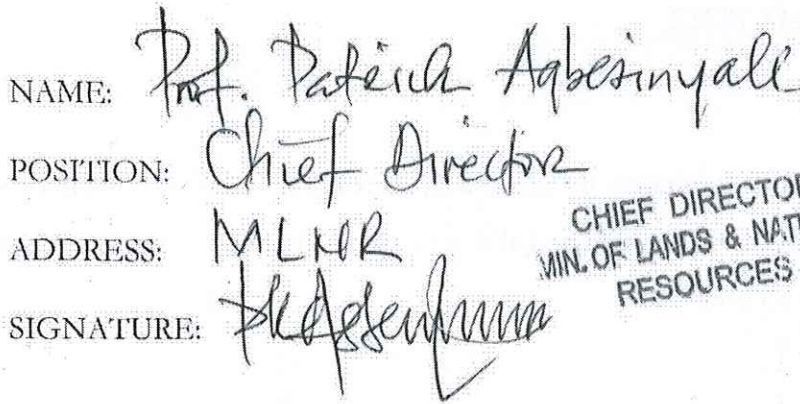 NAME: Prof. Patrick Agbesinyale
POSITION: Chief Director
ADDRESS: MLNR
SIGNATURE:
CHIEF DIRECTOR
MIN. OF LANDS & NAT
RESOURCES